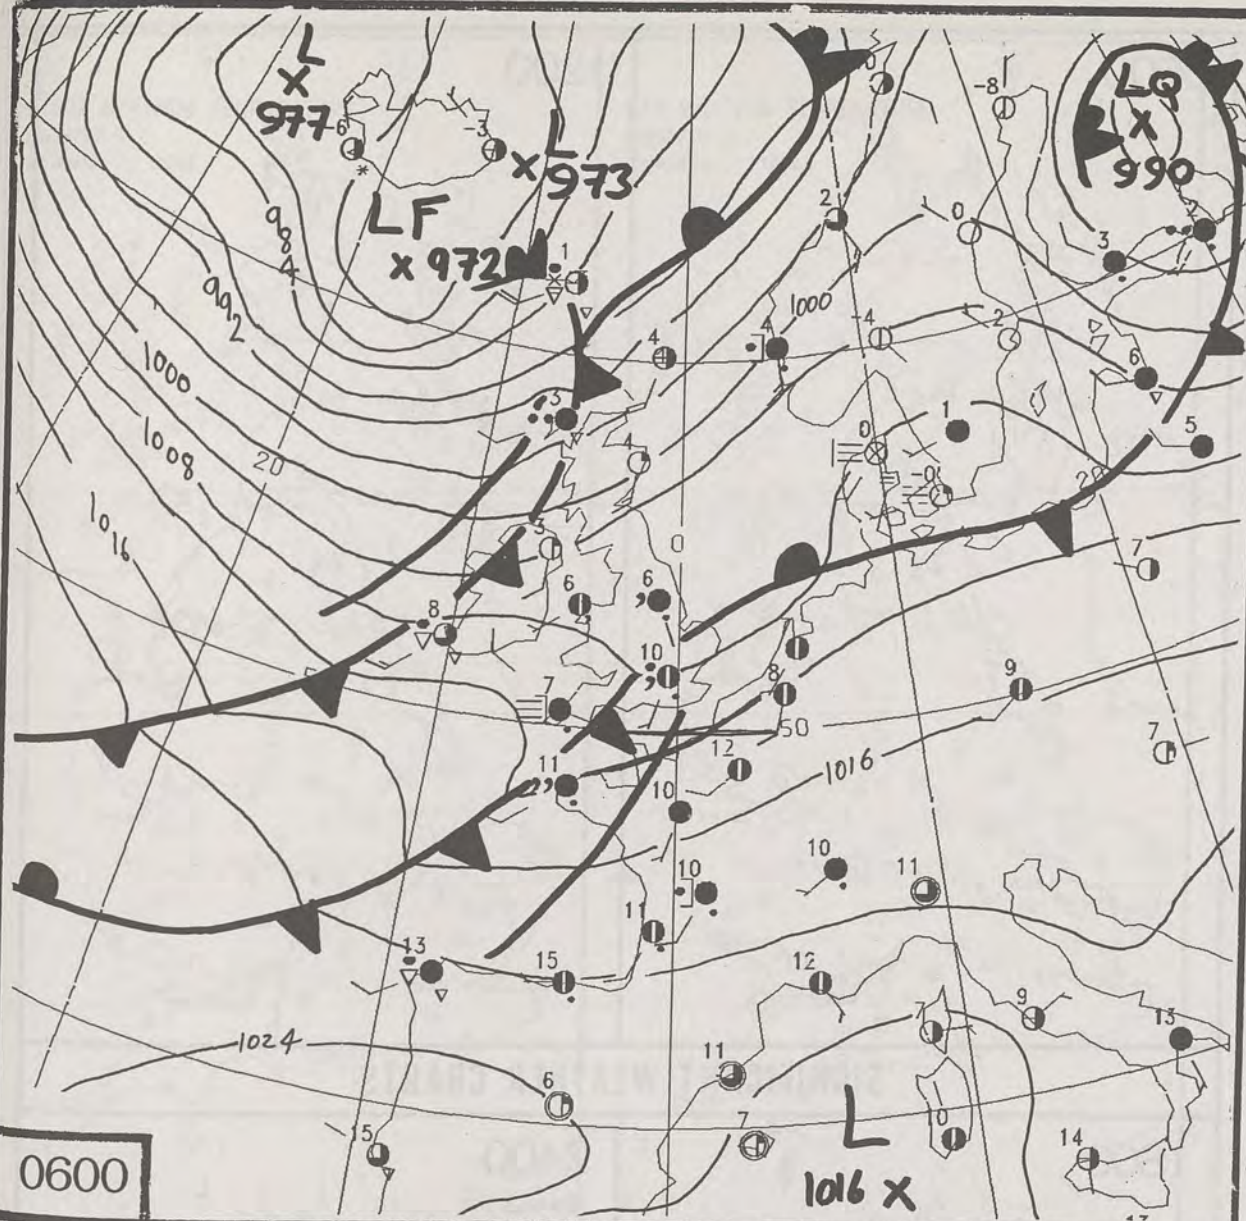 L
X
977
-6
-3
L
x 973
LF
x 972
1
0
-8
LQ
X
990
2
0
3
984
992
1000
1008
1016
20
4
4
1000
-4
2
6
5
3
4
0
1
-0
20
3
0
7
8
6
6
10
7
8
9
50
7
11
12
1016
10
10
10
11
11
13
15
12
7
9
13
1024
6
11
7
L
10
14
15
1016 X
0600